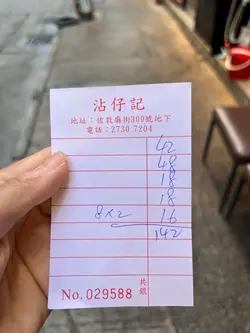 沾仔記
地址：佐敦廟街309號地下
電話：2730 7204
42
48
18
18
8×2 16
142
No. 029588 共銀